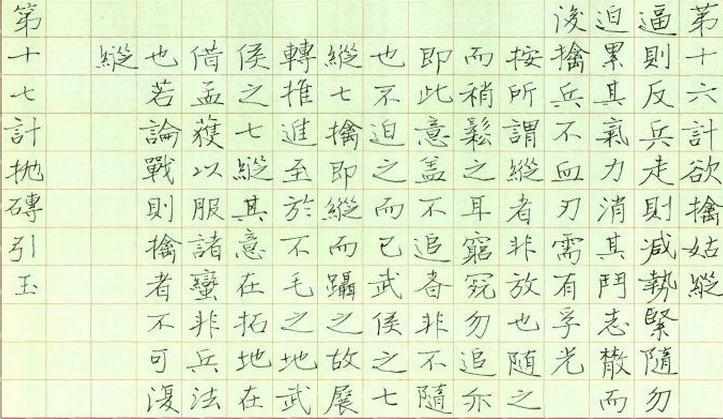 第十六計欲擒姑縱
逼則反兵走則減勢緊隨勿
迫累其氣力消其鬥志散而
後擒兵不血刃需有孚光
按所謂縱者非放也隨之
而稍鬆之耳窮寇勿追亦
即此意盖不追者非不隨
也不迫之而已武侯之七
縱七擒即縱而躡之故展
轉推進至於不毛之地武
侯之七縱其意在拓地在
借孟獲以服諸蠻非兵法
也若論戰則擒者不可復
縱
第十七計抛磚引玉